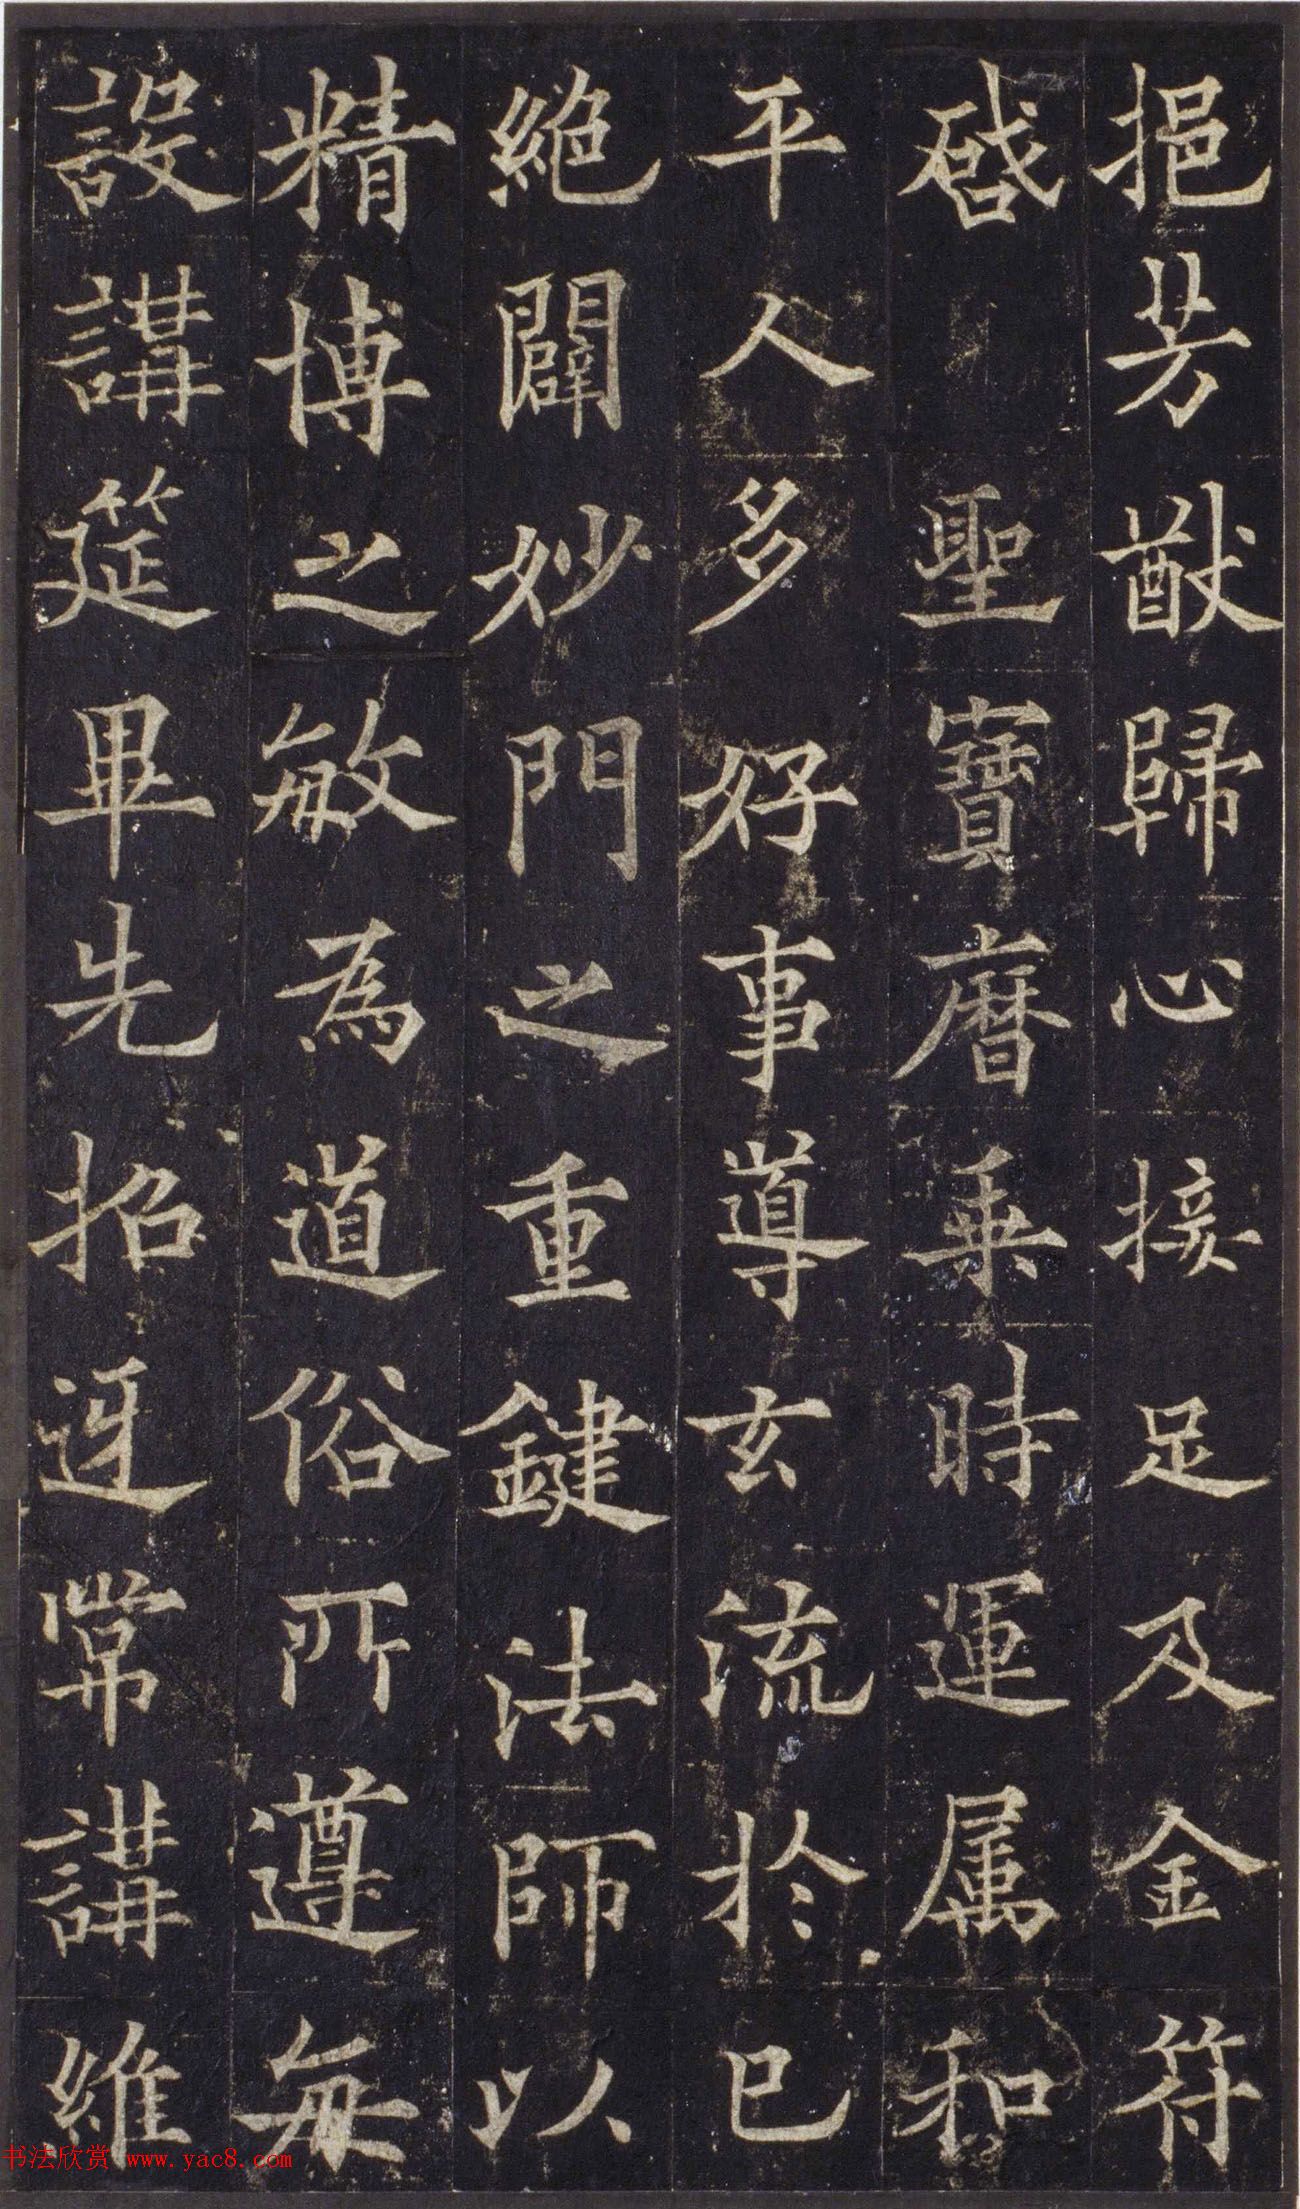 挹芳猷歸心接足及金符
啓聖寶曆乘時運属和
平人多好事導玄流於已
絕闢妙門之重鍵法師以
精博之敏為道俗所遵每
設講筵畢先招迓常講維
书法欣赏 www.yac8.com